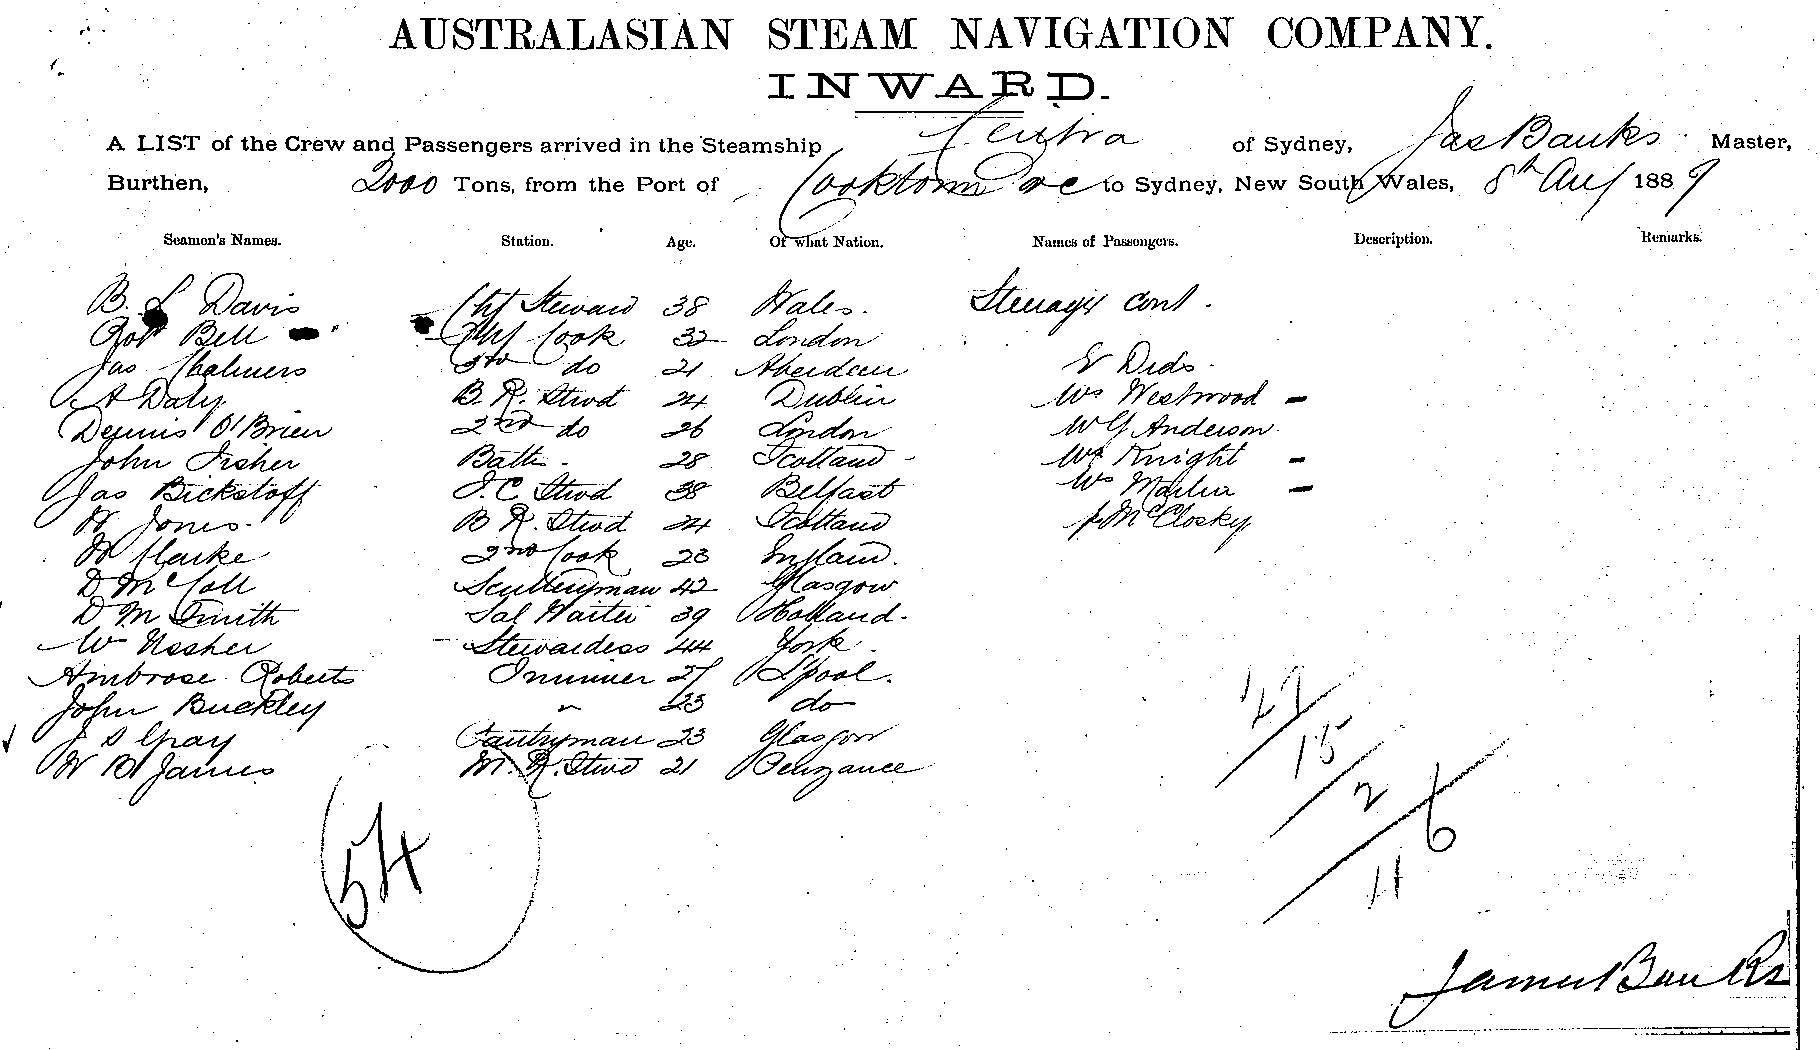 AUSTRALASIAN STEAM NAVIGATION COMPANY.
INWARD.
A LIST of the Crew and Passengers arrived in the Steamship of Sydney, Jas Banks Master,
Burthen, 2000 Tons, from the Port of Cooktown &c to Sydney, New South Wales, 8th Aug 1889
Seamen's Names. Station. Age. Of what Nation. Names of Passengers. Description. Remarks.
B. L Davis Chf Steward 38 Wales. Steerage cont.
Robt Bell Chf Cook 32 London
Jas Chalmers 3rd do 21 Aberdeen Dids.
A Daly B. R. Stwd 24 Dublin Westwood -
Dennis O'Brien 2nd do 26 London W G Anderson.
John Fisher Bath 28 Scotland Knight -
Jas Bickstoff F. C Stwd 38 Belfast -
W Jones. B R. Stwd 24 Scotland McClosky
W Clarke 2nd Cook 23 England.
D McColl Sculleryman 42 Glasgow
D M Smith Sal Waiter 39 Holland.
Stewardess 44 York.
Ambrose Roberts 27 L'pool.
John Buckley " 23 do
J S Gray Pantryman 23 Glasgow
W B James M. R. Stwd 21 Penzance
27
15
2
6
11
54
James Banks